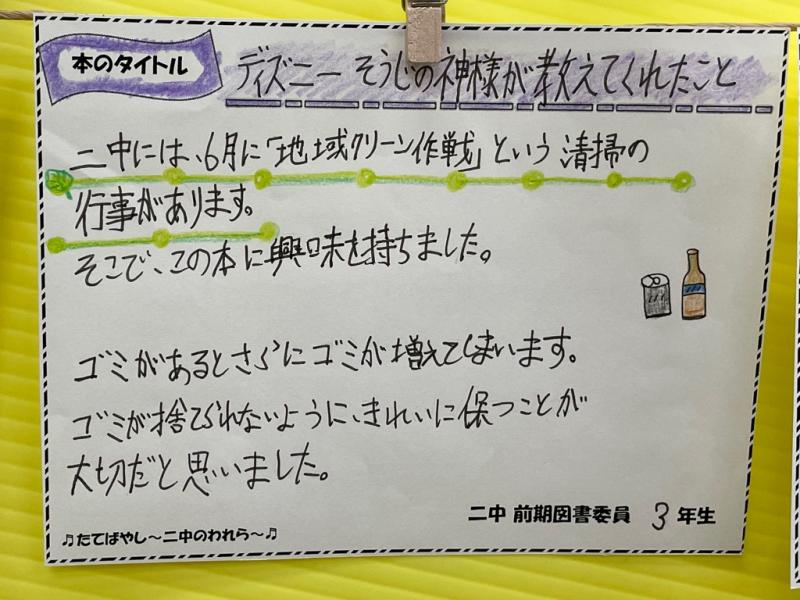 本のタイトル ディズニー そうじの神様が教えてくれたこと
二中には、6月に「地域クリーン作戦」という清掃の
行事があります。
そこで、この本に興味を持ちました。
ゴミがあるとさらにゴミが増えてしまいます。
ゴミが捨てられないように、きれいに保つことが
大切だと思いました。
二中 前期図書委員 3年生
♫たてばやし～二中のわれら～♫